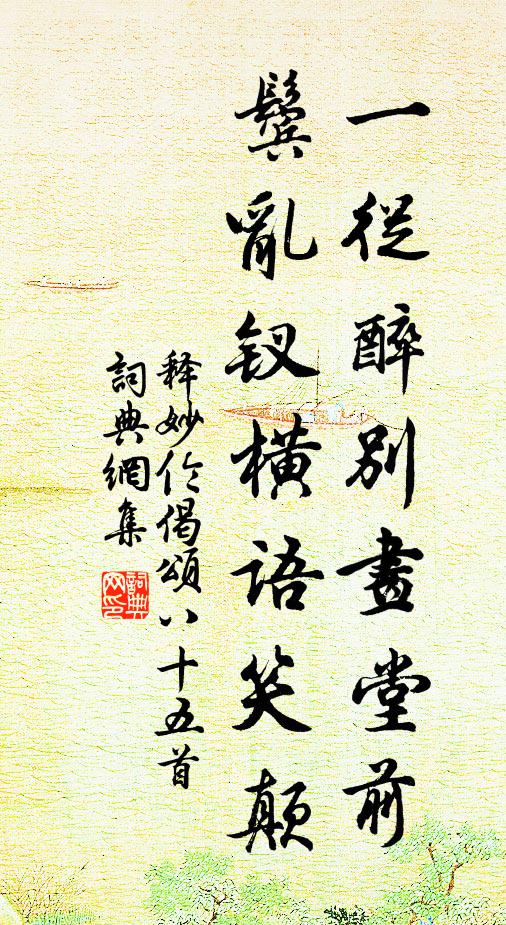 一從醉別畫堂前
鬢亂釵橫語笑顛
释妙伦偈頌八十五首
詞典網集
詞典网印